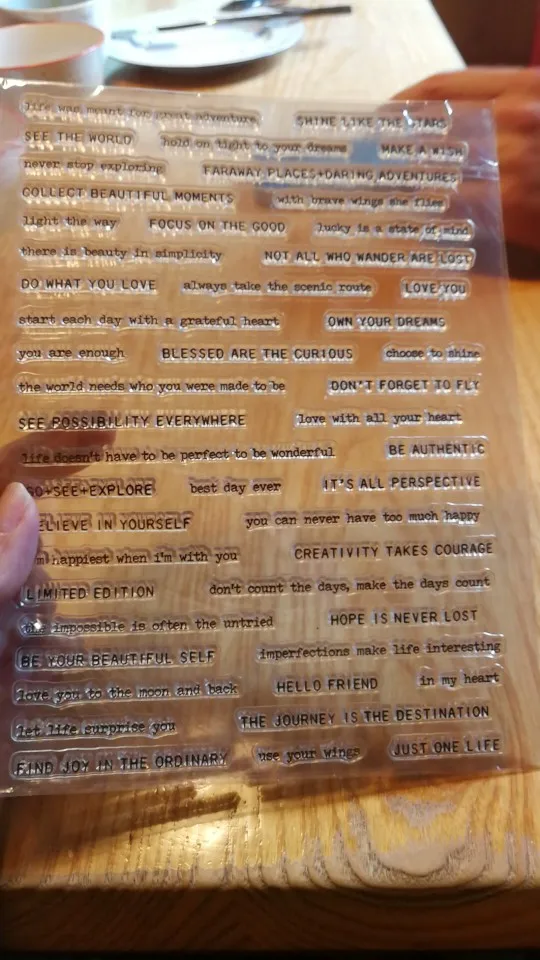 life was meant for great adventure SHINE LIKE THE STARS
SEE THE WORLD hold on tight to your dreams MAKE A WISH
never stop exploring FARAWAY PLACES+DARING ADVENTURES
COLLECT BEAUTIFUL MOMENTS with brave wings she flies
light the way FOCUS ON THE GOOD lucky is a state of mind
there is beauty in simplicity NOT ALL WHO WANDER ARE LOST
DO WHAT YOU LOVE always take the scenic route LOVE YOU
start each day with a grateful heart OWN YOUR DREAMS
you are enough BLESSED ARE THE CURIOUS choose to shine
the world needs who you were made to be DON'T FORGET TO FLY
SEE POSSIBILITY EVERYWHERE love with all your heart
life doesn't have to be perfect to be wonderful BE AUTHENTIC
GO+SEE+EXPLORE best day ever IT'S ALL PERSPECTIVE
ELIEVE IN YOURSELF you can never have too much happy
m happiest when i'm with you CREATIVITY TAKES COURAGE
LIMITED EDITION don't count the days, make the days count
the impossible is often the untried HOPE IS NEVER LOST
BE YOUR BEAUTIFUL SELF imperfections make life interesting
love you to the moon and back HELLO FRIEND in my heart
let life surprise you THE JOURNEY IS THE DESTINATION
FIND JOY IN THE ORDINARY use your wings JUST ONE LIFE